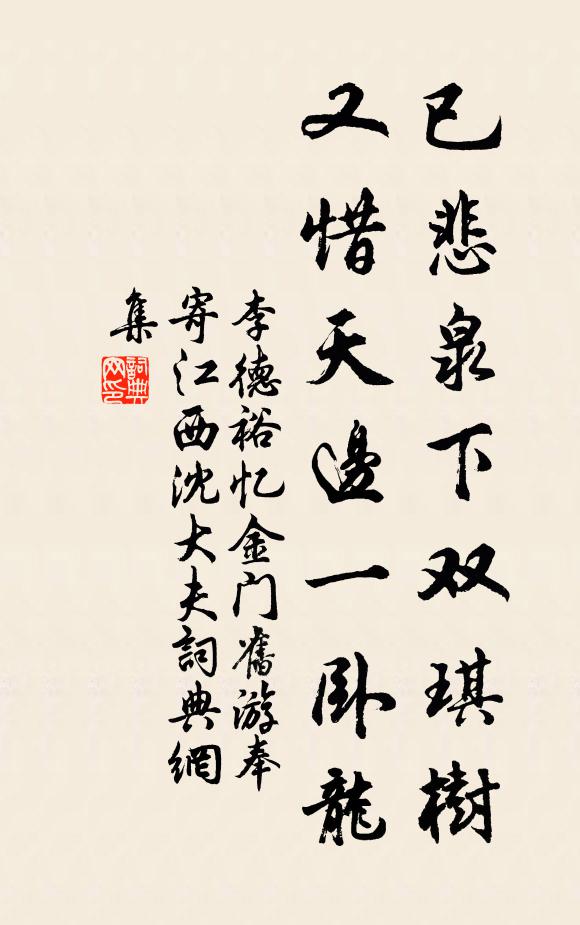 已悲泉下双琪樹
又惜天邊一卧龍
李德裕忆金门舊游奉
寄江西沈大夫詞典網
集
詞典
网印